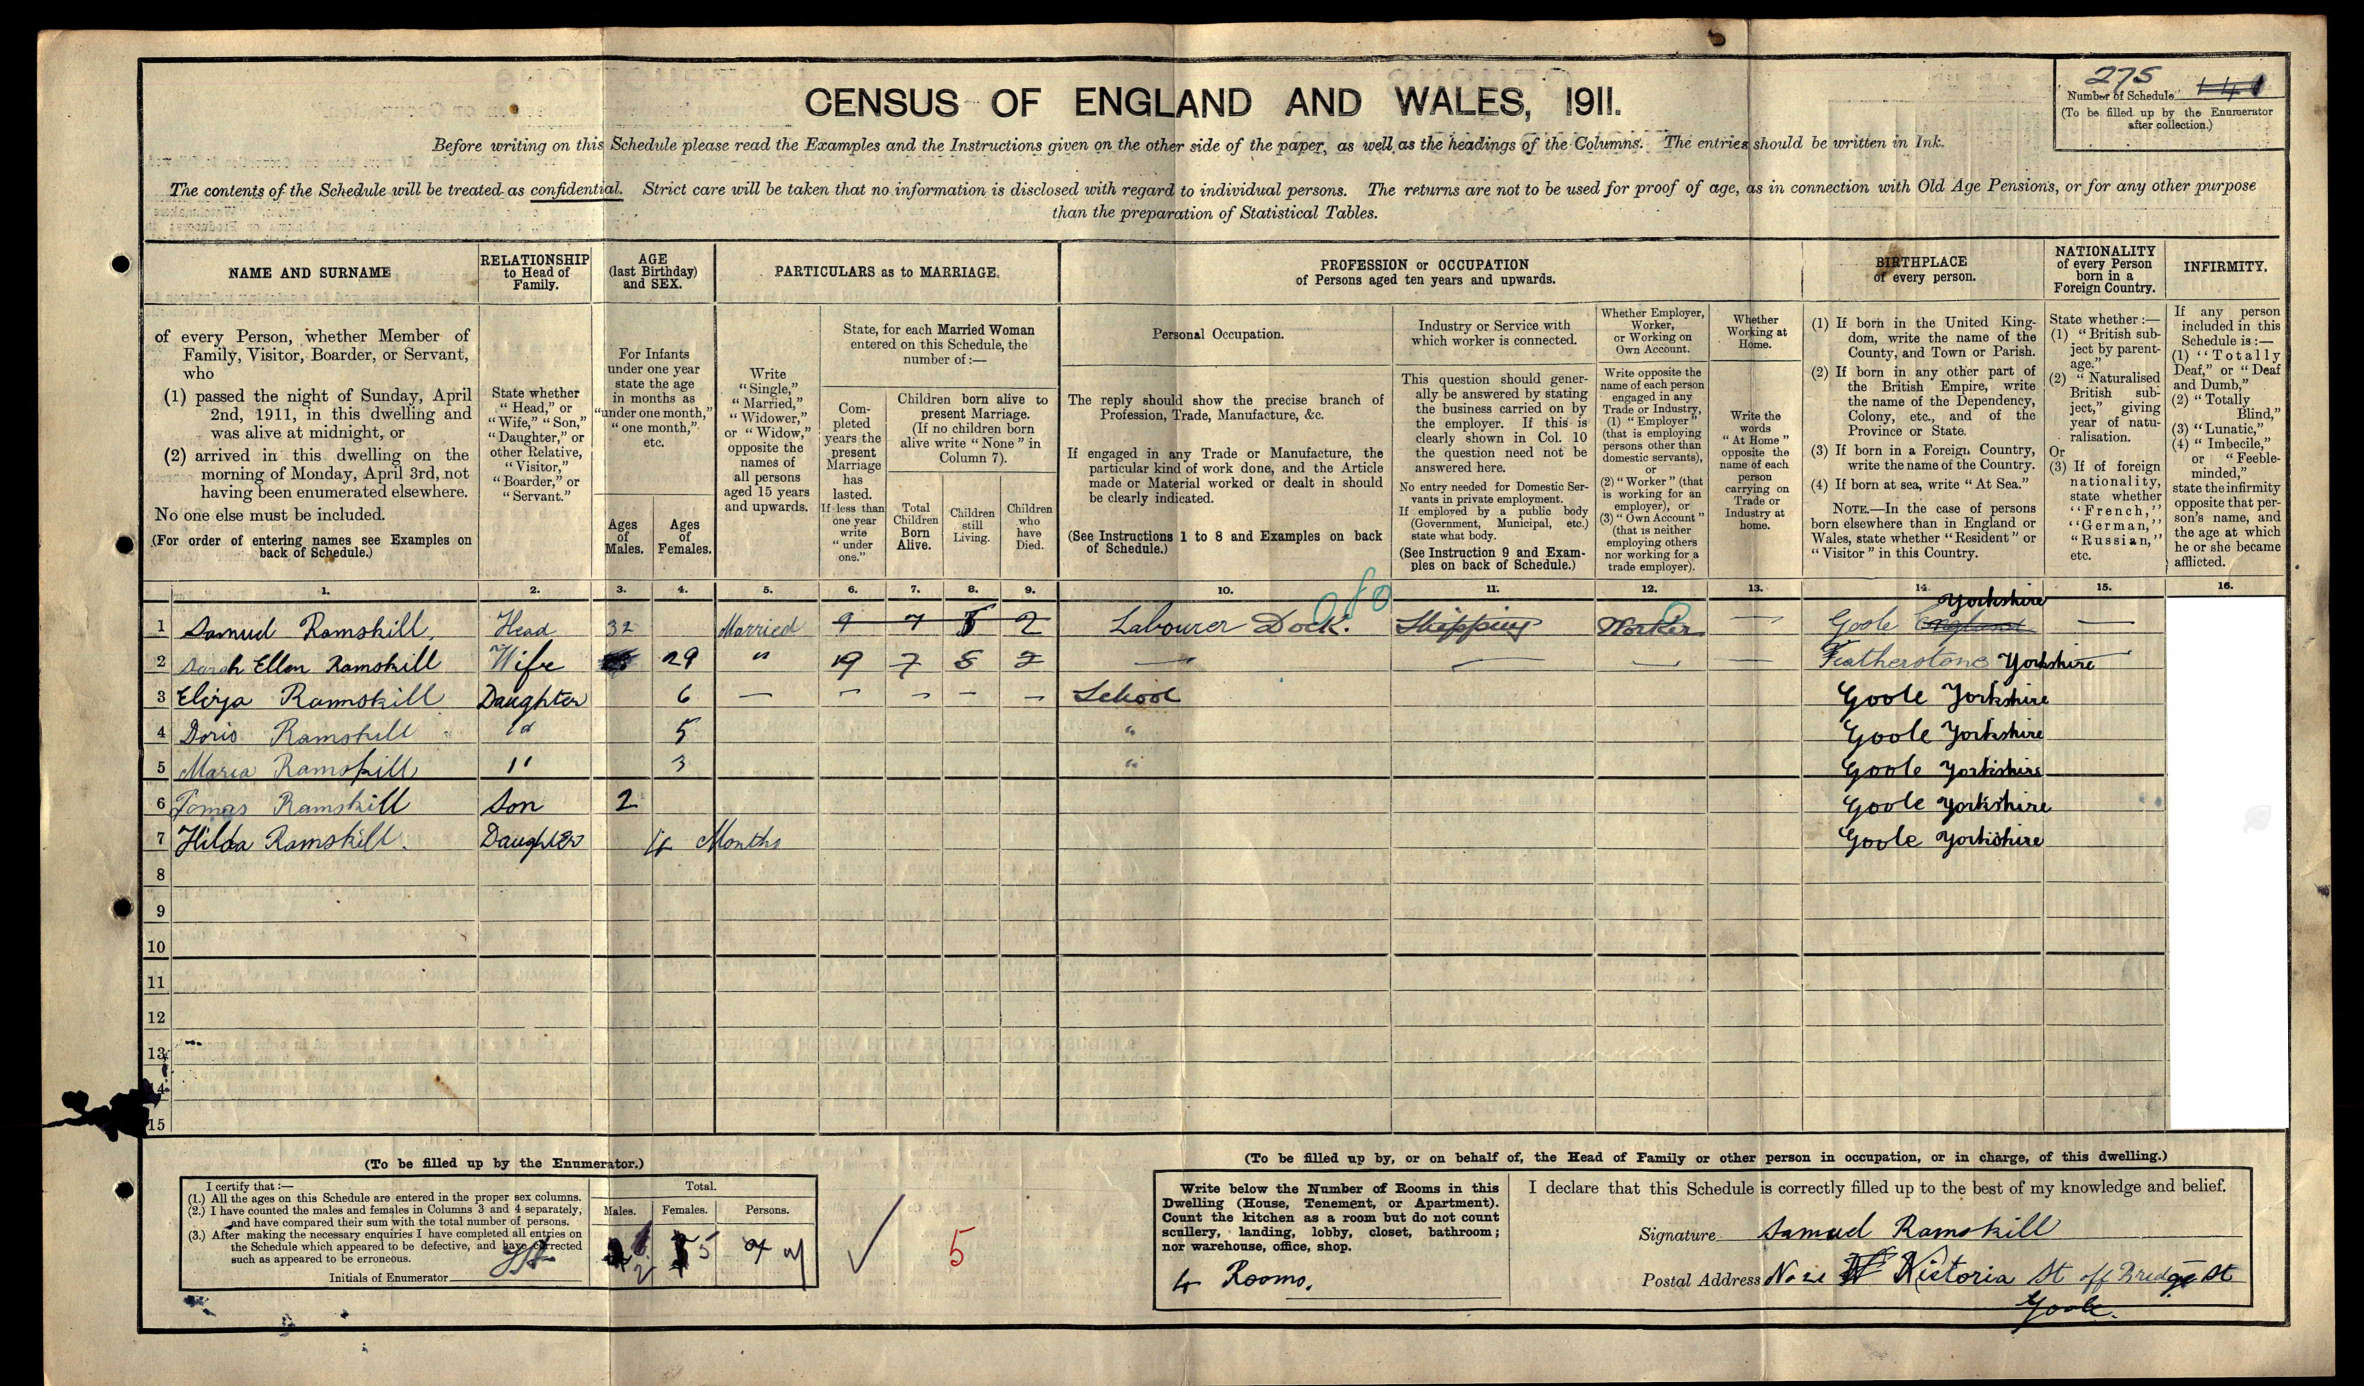 275
Number of Schedule 140
(To be filled up by the Enumerator
after collection.)
CENSUS OF ENGLAND AND WALES, 1911.
Before writing on this Schedule please read the Examples and the Instructions given on the other side of the paper, as well as the headings of the Columns. The entries should be written in Ink.
The contents of the Schedule will be treated as confidential. Strict care will be taken that no information is disclosed with regard to individual persons. The returns are not to be used for proof of age, as in connection with Old Age Pensions, or for any other purpose
than the preparation of Statistical Tables.
NAME AND SURNAME
of every Person, whether Member of
Family, Visitor, Boarder, or Servant,
who
(1) passed the night of Sunday, April
2nd, 1911, in this dwelling and
was alive at midnight, or
(2) arrived in this dwelling on the
morning of Monday, April 3rd, not
having been enumerated elsewhere.
No one else must be included.
(For order of entering names see Examples on
back of Schedule.)
RELATIONSHIP
to Head of
Family.
State whether
"Head," or
"Wife," "Son,"
"Daughter," or
other Relative,
"Visitor,"
"Boarder," or
"Servant."
AGE
(last Birthday)
and SEX.
For Infants
under one year
state the age
in months as
"under one month,"
"one month,"
etc.
Ages
of
Males.
Ages
of
Females.
PARTICULARS as to MARRIAGE.
Write
"Single,"
"Married,"
"Widower,"
or "Widow,"
opposite the
names of
all persons
aged 15 years
and upwards.
State, for each Married Woman
entered on this Schedule, the
number of:—
Com-
pleted
years the
present
Marriage
has
lasted.
If less than
one year
write
"under
one."
Children born alive to
present Marriage.
(If no children born
alive write "None" in
Column 7).
Total
Children
Born
Alive.
Children
still
Living.
Children
who
have
Died.
PROFESSION or OCCUPATION
of Persons aged ten years and upwards.
Personal Occupation.
The reply should show the precise branch of
Profession, Trade, Manufacture, &c.
If engaged in any Trade or Manufacture, the
particular kind of work done, and the Article
made or Material worked or dealt in should
be clearly indicated.
(See Instructions 1 to 8 and Examples on back
of Schedule.)
Industry or Service with
which worker is connected.
This question should gener-
ally be answered by stating
the business carried on by
the employer. If this is
clearly shown in Col. 10
the question need not be
answered here.
No entry needed for Domestic Ser-
vants in private employment.
If employed by a public body
(Government, Municipal, etc.)
state what body.
(See Instruction 9 and Exam-
ples on back of Schedule.)
Whether Employer,
Worker,
or Working on
Own Account.
Write opposite the
name of each person
engaged in any
Trade or Industry,
(1) "Employer"
(that is employing
persons other than
domestic servants),
or
(2) "Worker" (that
is working for an
employer), or
(3) "Own Account"
(that is neither
employing others
nor working for a
trade employer).
Whether
Working at
Home.
Write the
words
"At Home"
opposite the
name of each
person
carrying on
Trade or
Industry at
home.
BIRTHPLACE
of every person.
(1) If born in the United King-
dom, write the name of the
County, and Town or Parish.
(2) If born in any other part of
the British Empire, write
the name of the Dependency,
Colony, etc., and of the
Province or State.
(3) If born in a Foreign Country,
write the name of the Country.
(4) If born at sea, write "At Sea."
NOTE.—In the case of persons
born elsewhere than in England or
Wales, state whether "Resident" or
"Visitor" in this Country.
NATIONALITY
of every Person
born in a
Foreign Country.
State whether:—
(1) "British sub-
ject by parent-
age."
(2) "Naturalised
British sub-
ject," giving
year of natu-
ralisation.
Or
(3) If of foreign
nationality,
state whether
"French,"
"German,"
"Russian,"
etc.
INFIRMITY.
If any person
included in this
Schedule is:—
(1) "Totally
Deaf," or "Deaf
and Dumb,"
(2) "Totally
Blind,"
(3) "Lunatic,"
(4) "Imbecile,"
or "Feeble-
minded,"
state the infirmity
opposite that per-
son's name, and
the age at which
he or she became
afflicted.
1. 2. 3. 4. 5. 6. 7. 8. 9. 10. 11. 12. 13. 14. 15. 16.
080
Yorkshire
1 Samuel Ramskill. Head 32 Married 9 7 5 2 Labourer Dock. Shipping Worker — Goole England —
2 Sarah Ellen Ramskill Wife 29 " 19 7 5 2 — — — — Featherstone Yorkshire —
3 Eliza Ramskill Daughter 6 — — — — — School Goole Yorkshire
4 Doris Ramskill " 5 " Goole Yorkshire
5 Maria Ramskill " 3 " Goole Yorkshire
6 Tomas Ramskill Son 2 Goole Yorkshire
7 Hilda Ramskill. Daughter 4 Months Goole Yorkshire
8
9
10
11
12
13
14
15
(To be filled up by the Enumerator.)
I certify that:—
(1.) All the ages on this Schedule are entered in the proper sex columns.
(2.) I have counted the males and females in Columns 3 and 4 separately,
and have compared their sum with the total number of persons.
(3.) After making the necessary enquiries I have completed all entries on
the Schedule which appeared to be defective, and have corrected
such as appeared to be erroneous.
Initials of Enumerator
Total.
Males. Females. Persons.
2 5 7
5
(To be filled up by, or on behalf of, the Head of Family or other person in occupation, or in charge, of this dwelling.)
Write below the Number of Rooms in this
Dwelling (House, Tenement, or Apartment).
Count the kitchen as a room but do not count
scullery, landing, lobby, closet, bathroom;
nor warehouse, office, shop.
4 Rooms.
I declare that this Schedule is correctly filled up to the best of my knowledge and belief.
Signature Samuel Ramskill
Postal Address No 21 Victoria St off Bredge St
Goole.